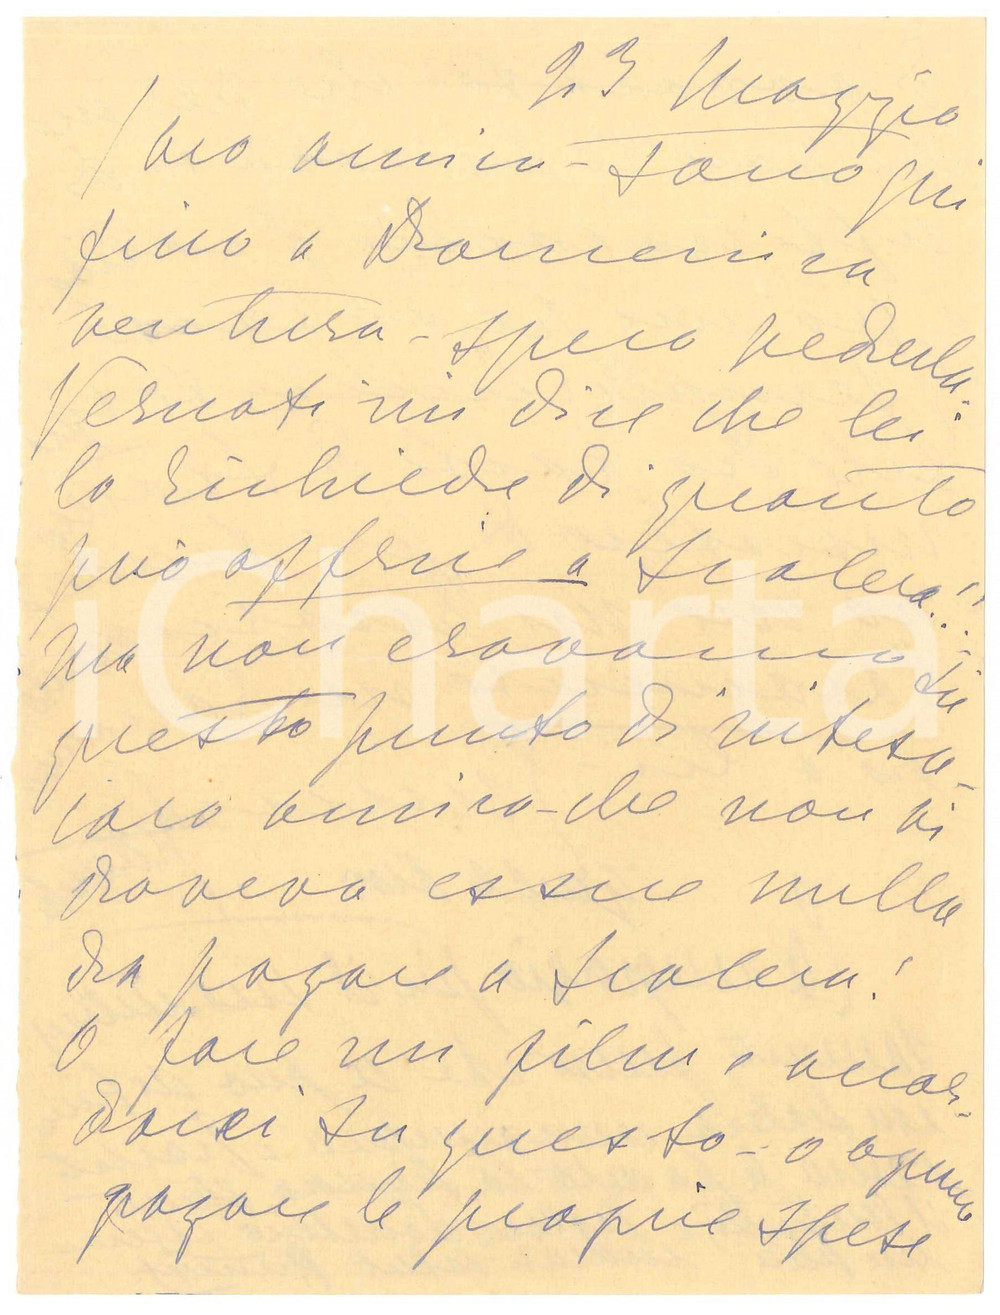 23 Maggio
Caro amico - Sono qui
fino a Domenica
ventura - spero vederla.
Vernati mi dice che lei
lo richiede di quanto
può offrire a Scalera!!
ma non eravamo su
questo punto di intesa -
caro amico - che non vi
doveva essere nulla
da pagare a Scalera!
O fare un film e accor-
darci su questo - o ognuno
pagare le proprie spese
iCharta